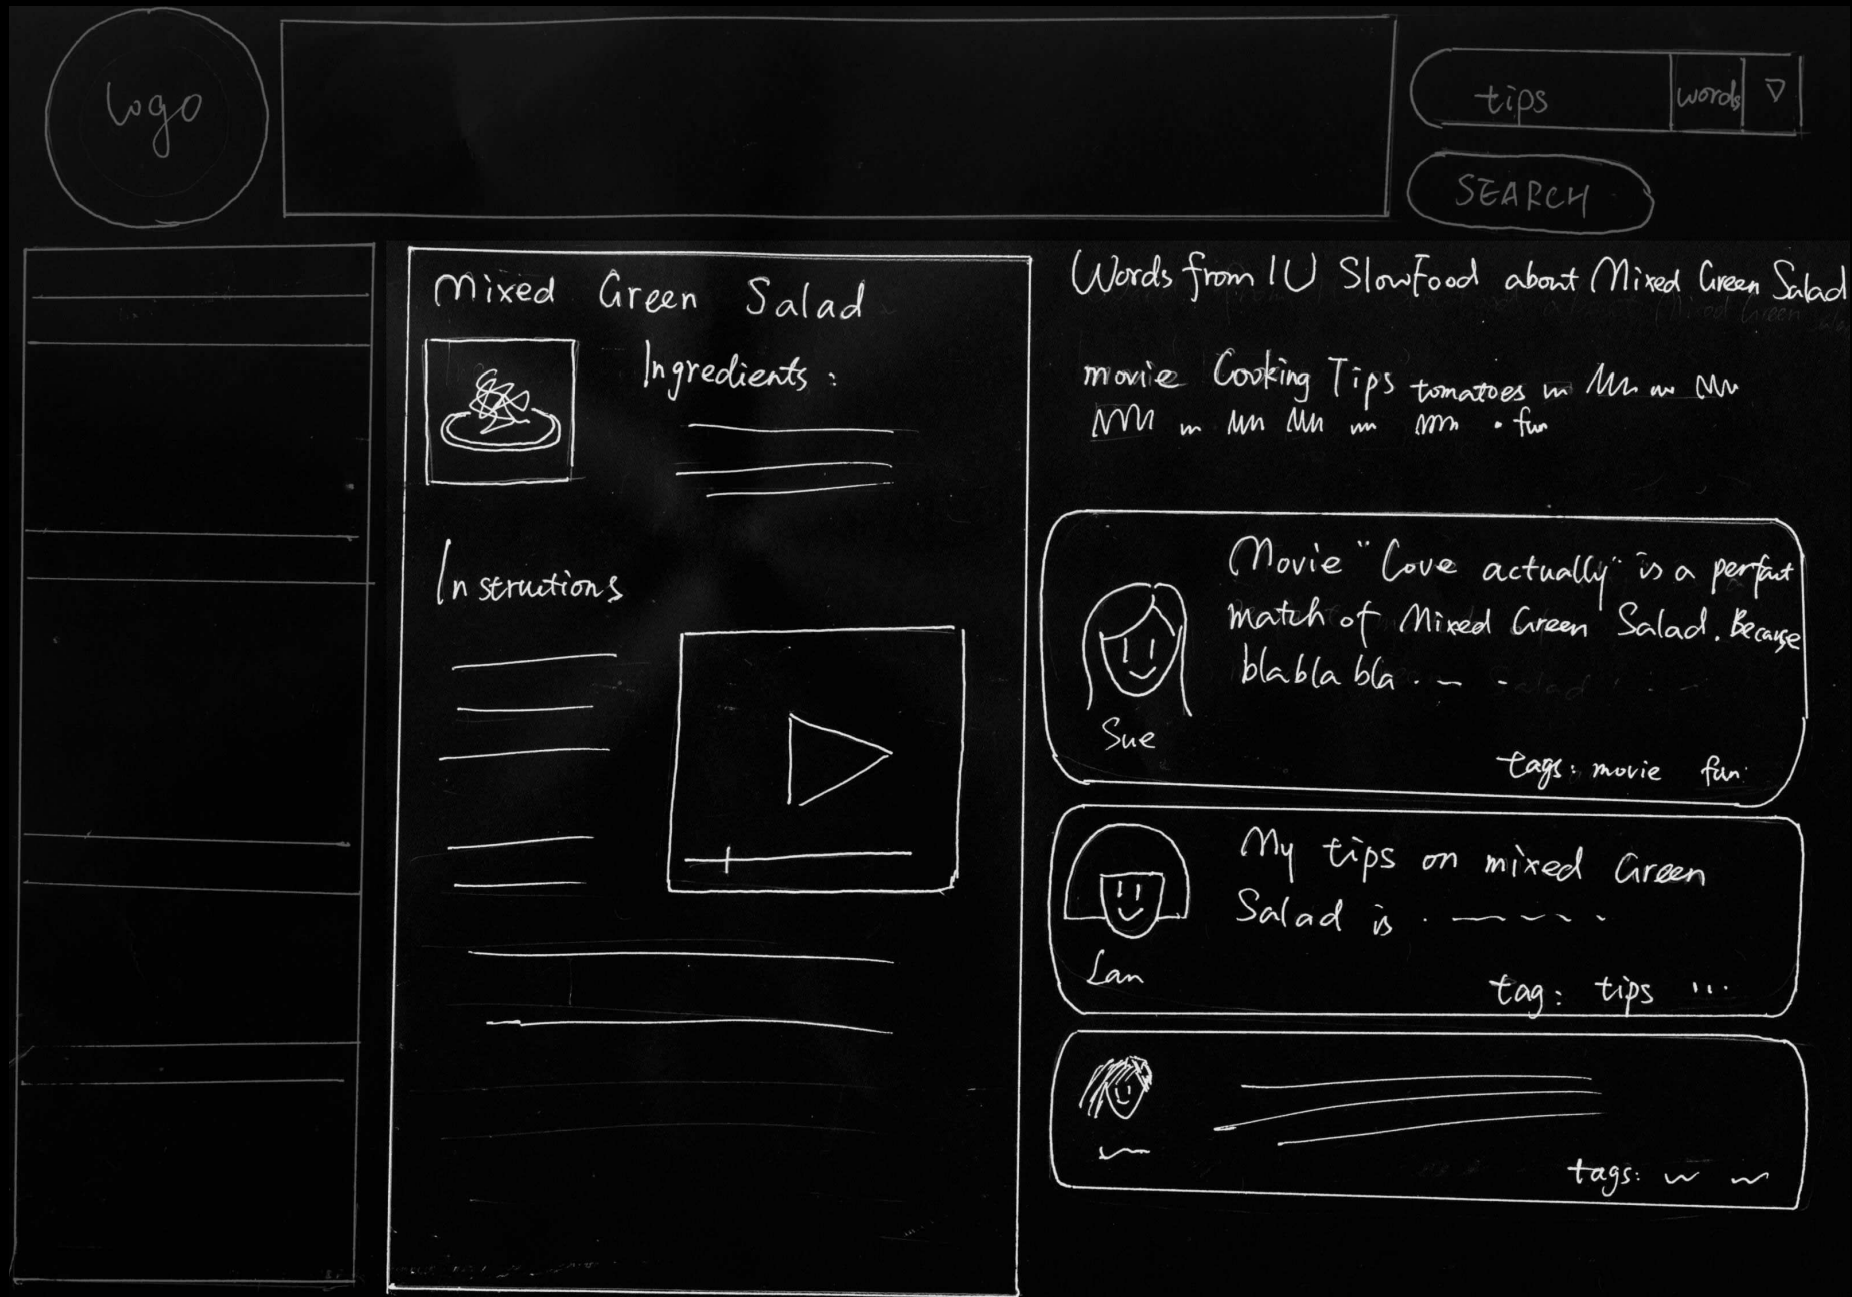 logo
tips words
SEARCH
Mixed Green Salad
Ingredients:
Instructions
Words from IU SlowFood about Mixed Green Salad
movie Cooking Tips tomatoes
• fun
Movie "Love actually" is a perfect
match of Mixed Green Salad. Because
bla bla bla . — -
Sue
tags: movie fun
My tips on mixed Green
Salad is . — - - -
Lan
tag: tips ...
tags: